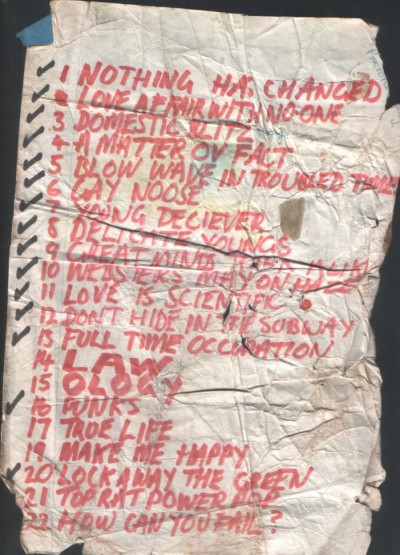 1 NOTHING HAS CHANGED
2 LOVE AFFAIR WITH NO-ONE
3 DOMESTIC BLITZ
4 A MATTER OV FACT
5 BLOW WAVE IN TROUBLED
6 GAY NOOSE
7 YOUNG DECIEVER
8 DELICATE YOUNGS
9 GREAT MINDS
10 WEBSTERS MAY ON
11 LOVE IS SCIENTIFIC
12 DON'T HIDE IN THE SUBWAY
13 FULL TIME OCCUPATION
14 LAW
15 OLOGY
16 PUNKS
17 TRUE LIFE
19 MAKE ME HAPPY
20 LOCK AWAY THE GREEN
21 TOP RAT POWER
22 HOW CAN YOU FAIL?